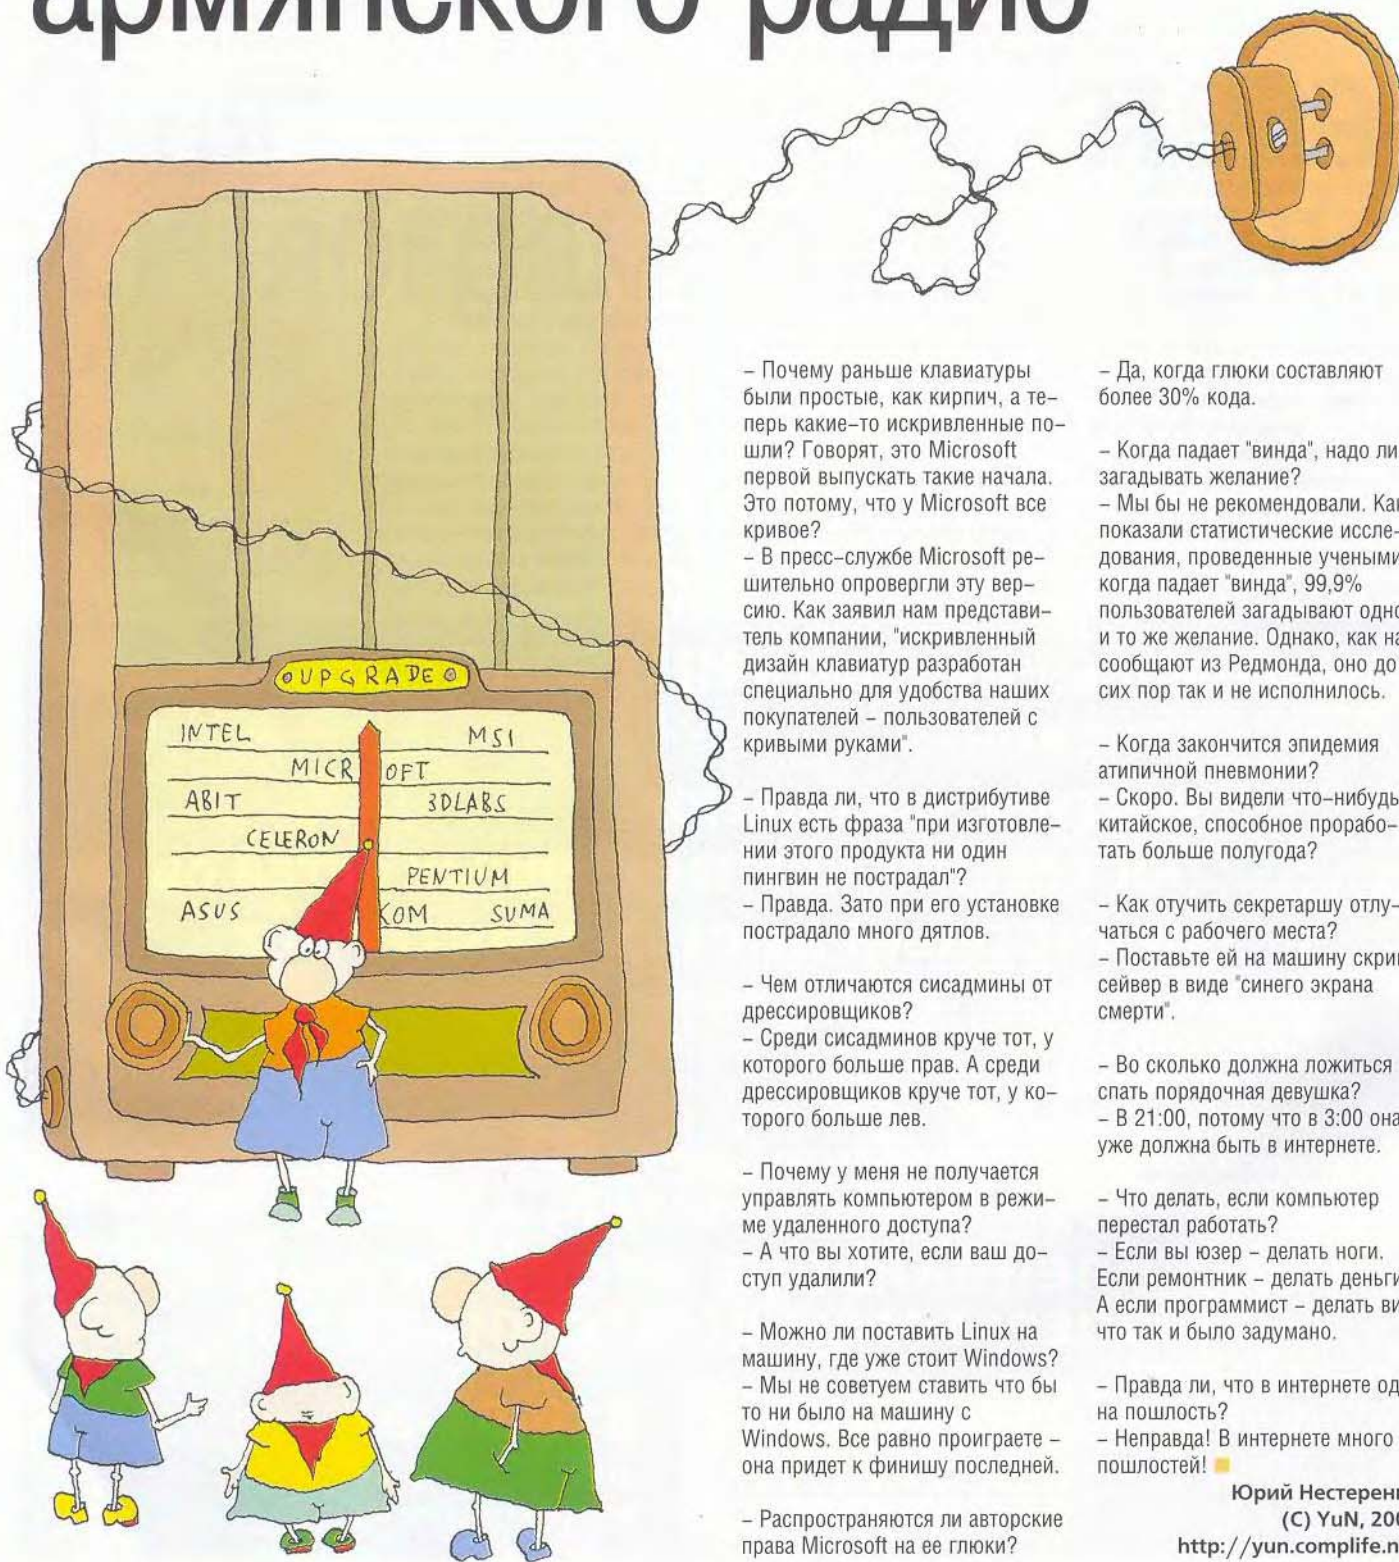 армянского радио
UPGRADE
INTEL MSI
MICR OFT
ABIT 3DLABS
CELERON
PENTIUM
ASUS KOM SUMA
– Почему раньше клавиатуры
были простые, как кирпич, а те–
перь какие–то искривленные по–
шли? Говорят, это Microsoft
первой выпускать такие начала.
Это потому, что у Microsoft все
кривое?
– В пресс–службе Microsoft ре–
шительно опровергли эту вер–
сию. Как заявил нам представи–
тель компании, "искривленный
дизайн клавиатур разработан
специально для удобства наших
покупателей – пользователей с
кривыми руками".
– Правда ли, что в дистрибутиве
Linux есть фраза "при изготовле–
нии этого продукта ни один
пингвин не пострадал"?
– Правда. Зато при его установке
пострадало много дятлов.
– Чем отличаются сисадмины от
дрессировщиков?
– Среди сисадминов круче тот, у
которого больше прав. А среди
дрессировщиков круче тот, у ко–
торого больше лев.
– Почему у меня не получается
управлять компьютером в режи–
ме удаленного доступа?
– А что вы хотите, если ваш до–
ступ удалили?
– Можно ли поставить Linux на
машину, где уже стоит Windows?
– Мы не советуем ставить что бы
то ни было на машину с
Windows. Все равно проиграете –
она придет к финишу последней.
– Распространяются ли авторские
права Microsoft на ее глюки?
– Да, когда глюки составляют
более 30% кода.
– Когда падает "винда", надо ли
загадывать желание?
– Мы бы не рекомендовали. Как
показали статистические иссле–
дования, проведенные учеными
когда падает "винда", 99,9%
пользователей загадывают одно
и то же желание. Однако, как на
сообщают из Редмонда, оно до
сих пор так и не исполнилось.
– Когда закончится эпидемия
атипичной пневмонии?
– Скоро. Вы видели что–нибудь
китайское, способное прорабо–
тать больше полугода?
– Как отучить секретаршу отлу–
чаться с рабочего места?
– Поставьте ей на машину скрин
сейвер в виде "синего экрана
смерти".
– Во сколько должна ложиться
спать порядочная девушка?
– В 21:00, потому что в 3:00 она
уже должна быть в интернете.
– Что делать, если компьютер
перестал работать?
– Если вы юзер – делать ноги.
Если ремонтник – делать деньги
А если программист – делать ви
что так и было задумано.
– Правда ли, что в интернете од
на пошлость?
– Неправда! В интернете много
пошлостей!
Юрий Нестерен
(C) YuN, 200
http://yun.complife.r